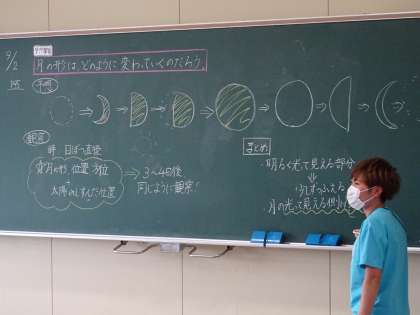 9/2
月の形は、どのように変わっていくのだろう。
予想
観察
時…日ぼつ直後
月の形、位置、方位
太陽のしずんだ位置
3〜4日後
同じように観察!
まとめ
・明るく光って見える部分
少しずつふえる
・月の光って見える側に